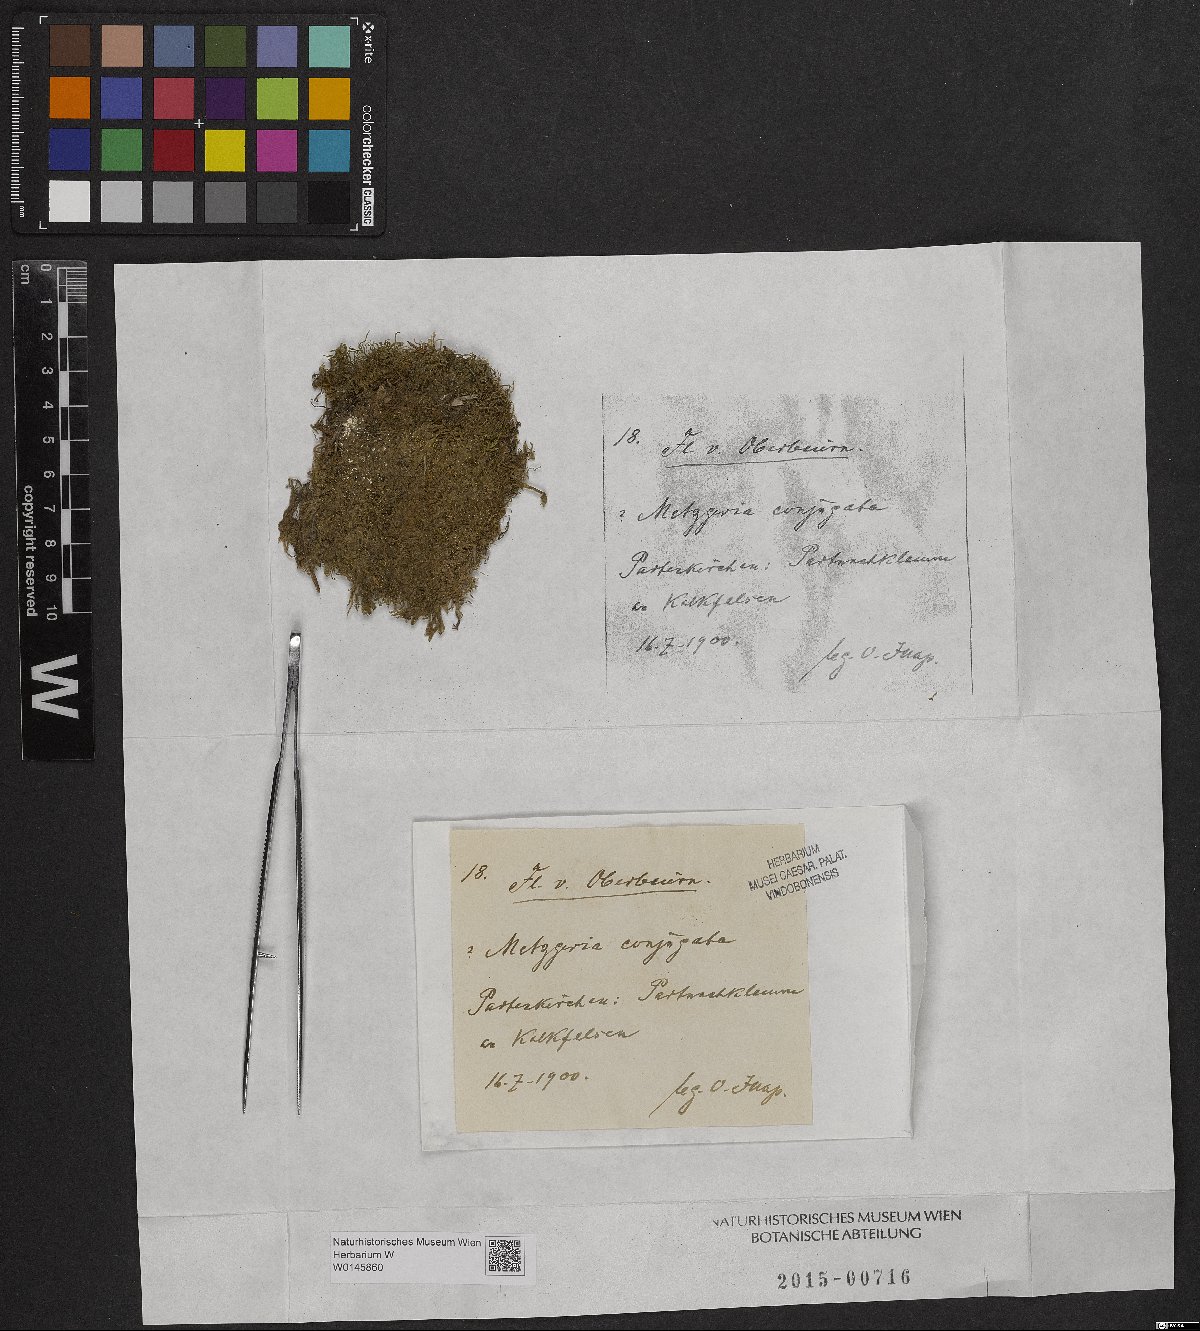 x-rite
colorchecker CLASSIC
mm
0 1 2 3 4 5 6 7 8 9 10
cm
copyright reserved
W
18. Fl. v. Oberbaiern.
? Metzgeria conjugata
Partenkirchen: Partnachklamm
an Kalkfelsen
16-7-1900.
leg. O. Jaap.
HERBARIUM
MUSEI CAESAR. PALAT.
VINDOBONENSIS
18. Fl. v. Oberbaiern.
? Metzgeria conjugata
Partenkirchen: Partnachklamm
an Kalkfelsen
16-7-1900.
leg. O. Jaap.
Naturhistorisches Museum Wien
Herbarium W
W0145860
NATURHISTORISCHES MUSEUM WIEN
BOTANISCHE ABTEILUNG
2015-00716